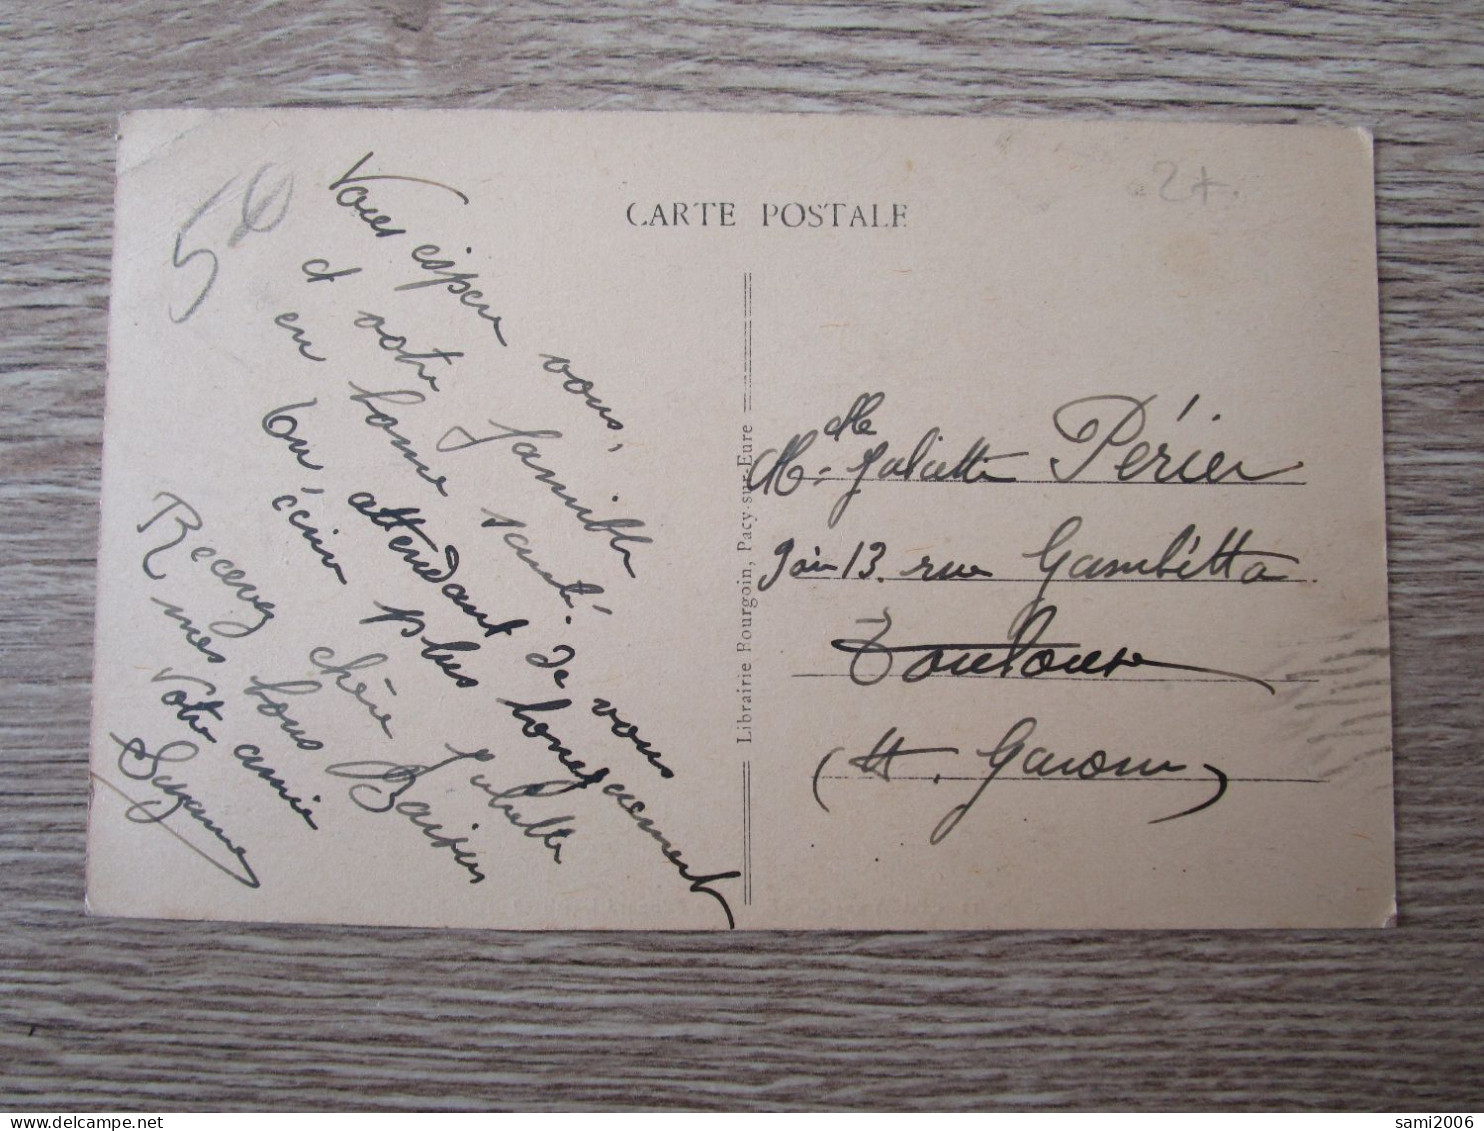 5€
2+
CARTE POSTALE
Vous espere vous,
et votre famille
en bonne santé.
En attendant de vous
écrire plus longuement
Recevez chère Juliette
mes bons Baisers
Votre amie
Suzanne
Librairie Bourgoin, Pacy-sur-Eure
Melle Juliette Périer
13. rue Gambetta
Toulouse
(H. Garonne)
sami2006